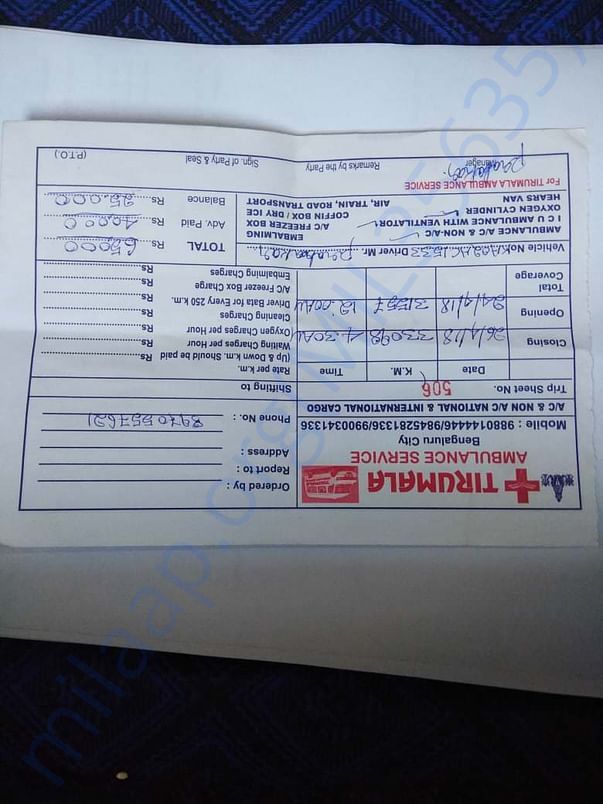 TIRUMALA
AMBULANCE SERVICE
Bengaluru City
Mobile : 9880144446/9845281336/9900341336
A/C & NON A/C NATIONAL & INTERNATIONAL CARGO
Ordered by :
Report to :
Address :
Phone No. : 8970557621
Trip Sheet No. 506
Shifting to
Date K.M. Time
Closing 26/4/18 33098 4.30AM
Opening 24/4/18 31557 12.00AM
Total
Coverage
Rate per k.m.
(Up & Down k.m. Should be paid Rs
Waiting Charges per Hour
(Oxygen Charges per Hour
Cleaning Charges
Driver Bata for every 250 k.m.
A/C Freezer Box Charge
Embalming Charges Rs
Vehicle No. Driver Mr.
AMBULANCE A/C & NON-A/C
I C U AMBULANCE WITH VENTILATOR
OXYGEN CYLINDER
HEARS VAN
EMBALMING
A/C FREEZER BOX
COFFIN BOX / DRY ICE
AIR, TRAIN, ROAD TRANSPORT
TOTAL Rs 65000
Adv. Paid Rs 40,000
Balance Rs 25.000
For TIRUMALA AMBULANCE SERVICE
Manager
Remarks by the Party
Sign. of Party & Seal
(P.T.O.)
milaap.org/MIL256357